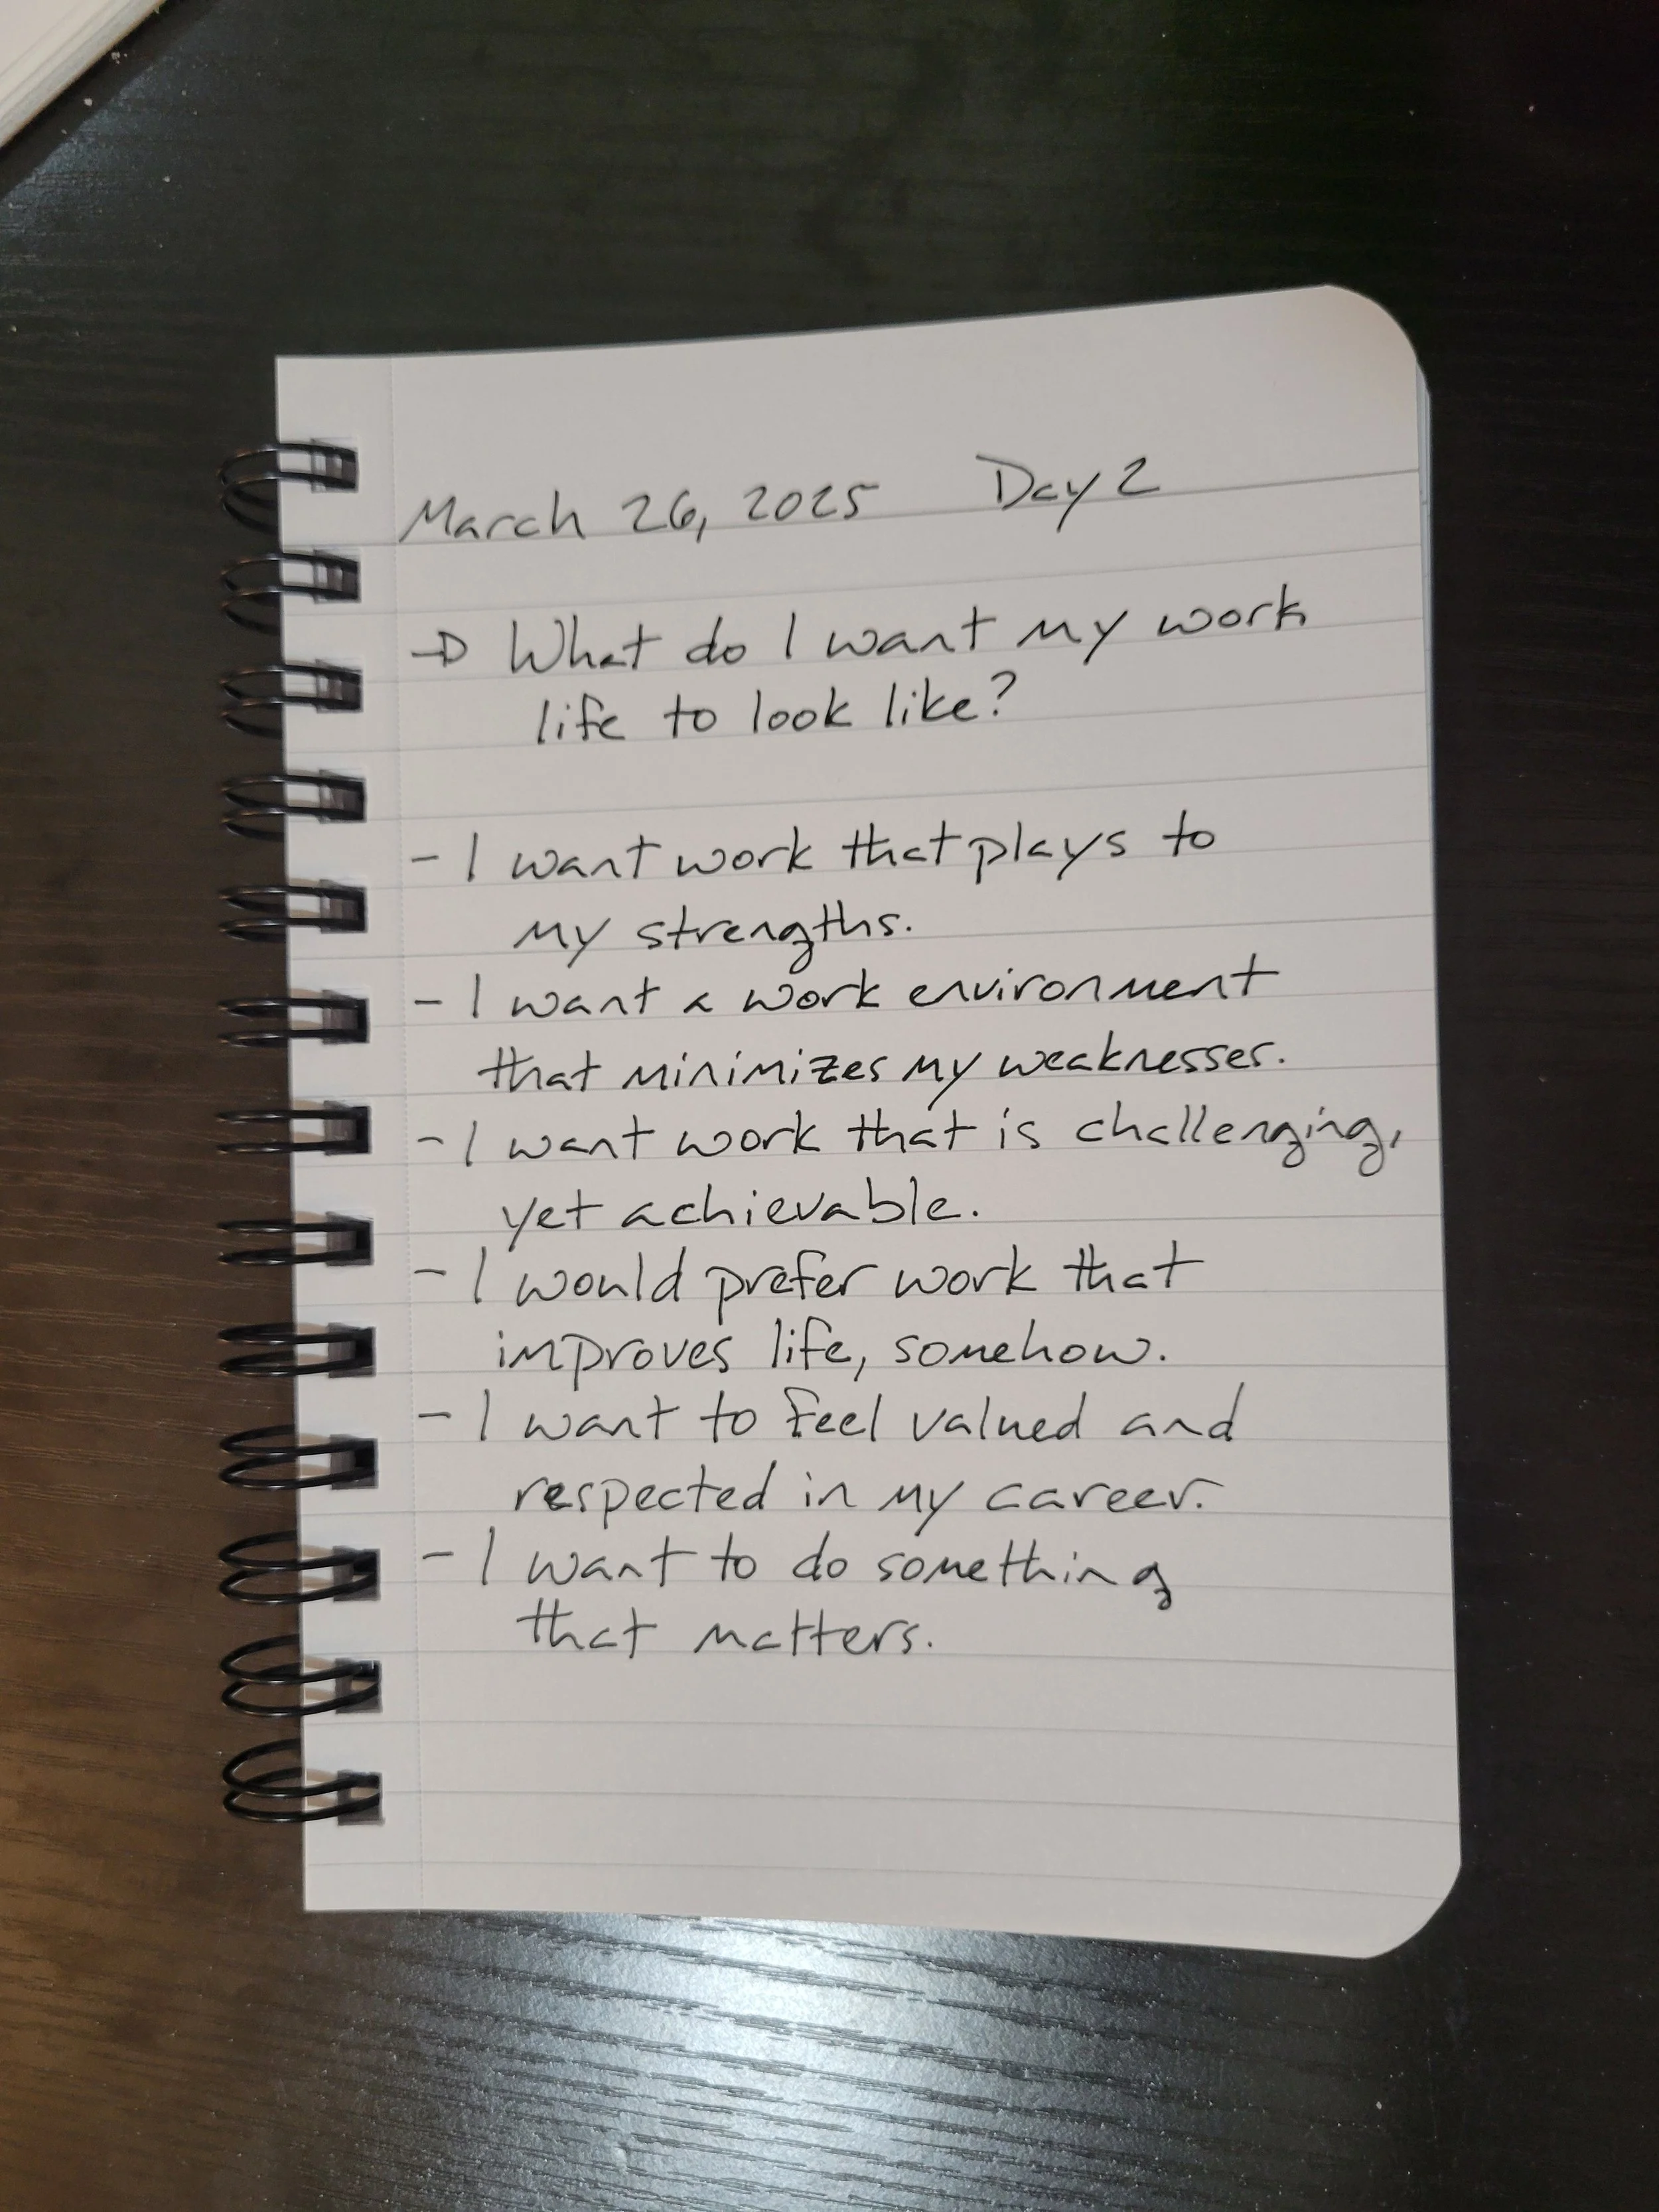 March 26, 2025 Day 2
→ What do I want my work
life to look like?
- I want work that plays to
my strengths.
- I want a work environment
that minimizes my weaknesses.
- I want work that is challenging,
yet achievable.
- I would prefer work that
improves life, somehow.
- I want to feel valued and
respected in my career.
- I want to do something
that matters.